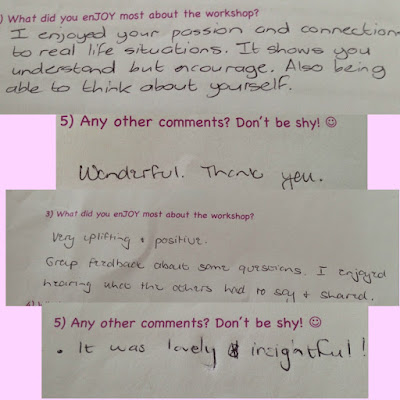 ) What did you enJOY most about the workshop?
I enjoyed your passion and connection
to real life situations. It shows you
understand but encourage. Also being
able to think about yourself.
5) Any other comments? Don't be shy! ☺
Wonderful. Thank you.
3) What did you enJOY most about the workshop?
Very uplifting + positive.
Group feedback about some questions. I enjoyed
hearing what the others had to say + shared.
5) Any other comments? Don't be shy! ☺
• It was lovely & insightful!